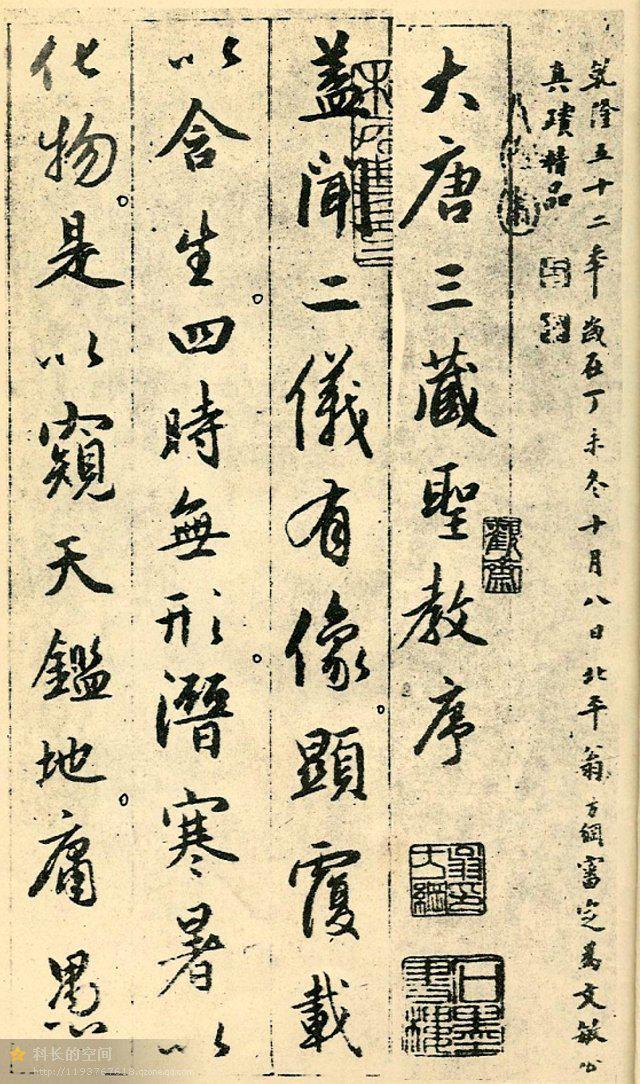 乾隆五十二年歲在丁未冬十月八日北平翁方綱審定為文敏公
真蹟精品
大唐三藏聖教序
蓋聞二儀有像。顯覆載
以含生。四時無形。潛寒暑以
化物。是以窺天鑑地。庸愚
科长的空间
http://1193767618.qzone.qq.com